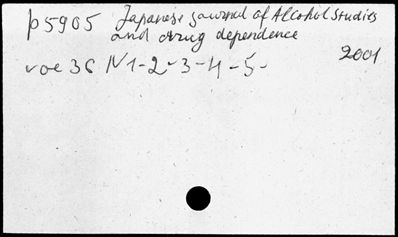 p5905 Japanese Journal of Alcohol Studies
and drug dependence
2001
voe 36 N 1-2-3-4-5-